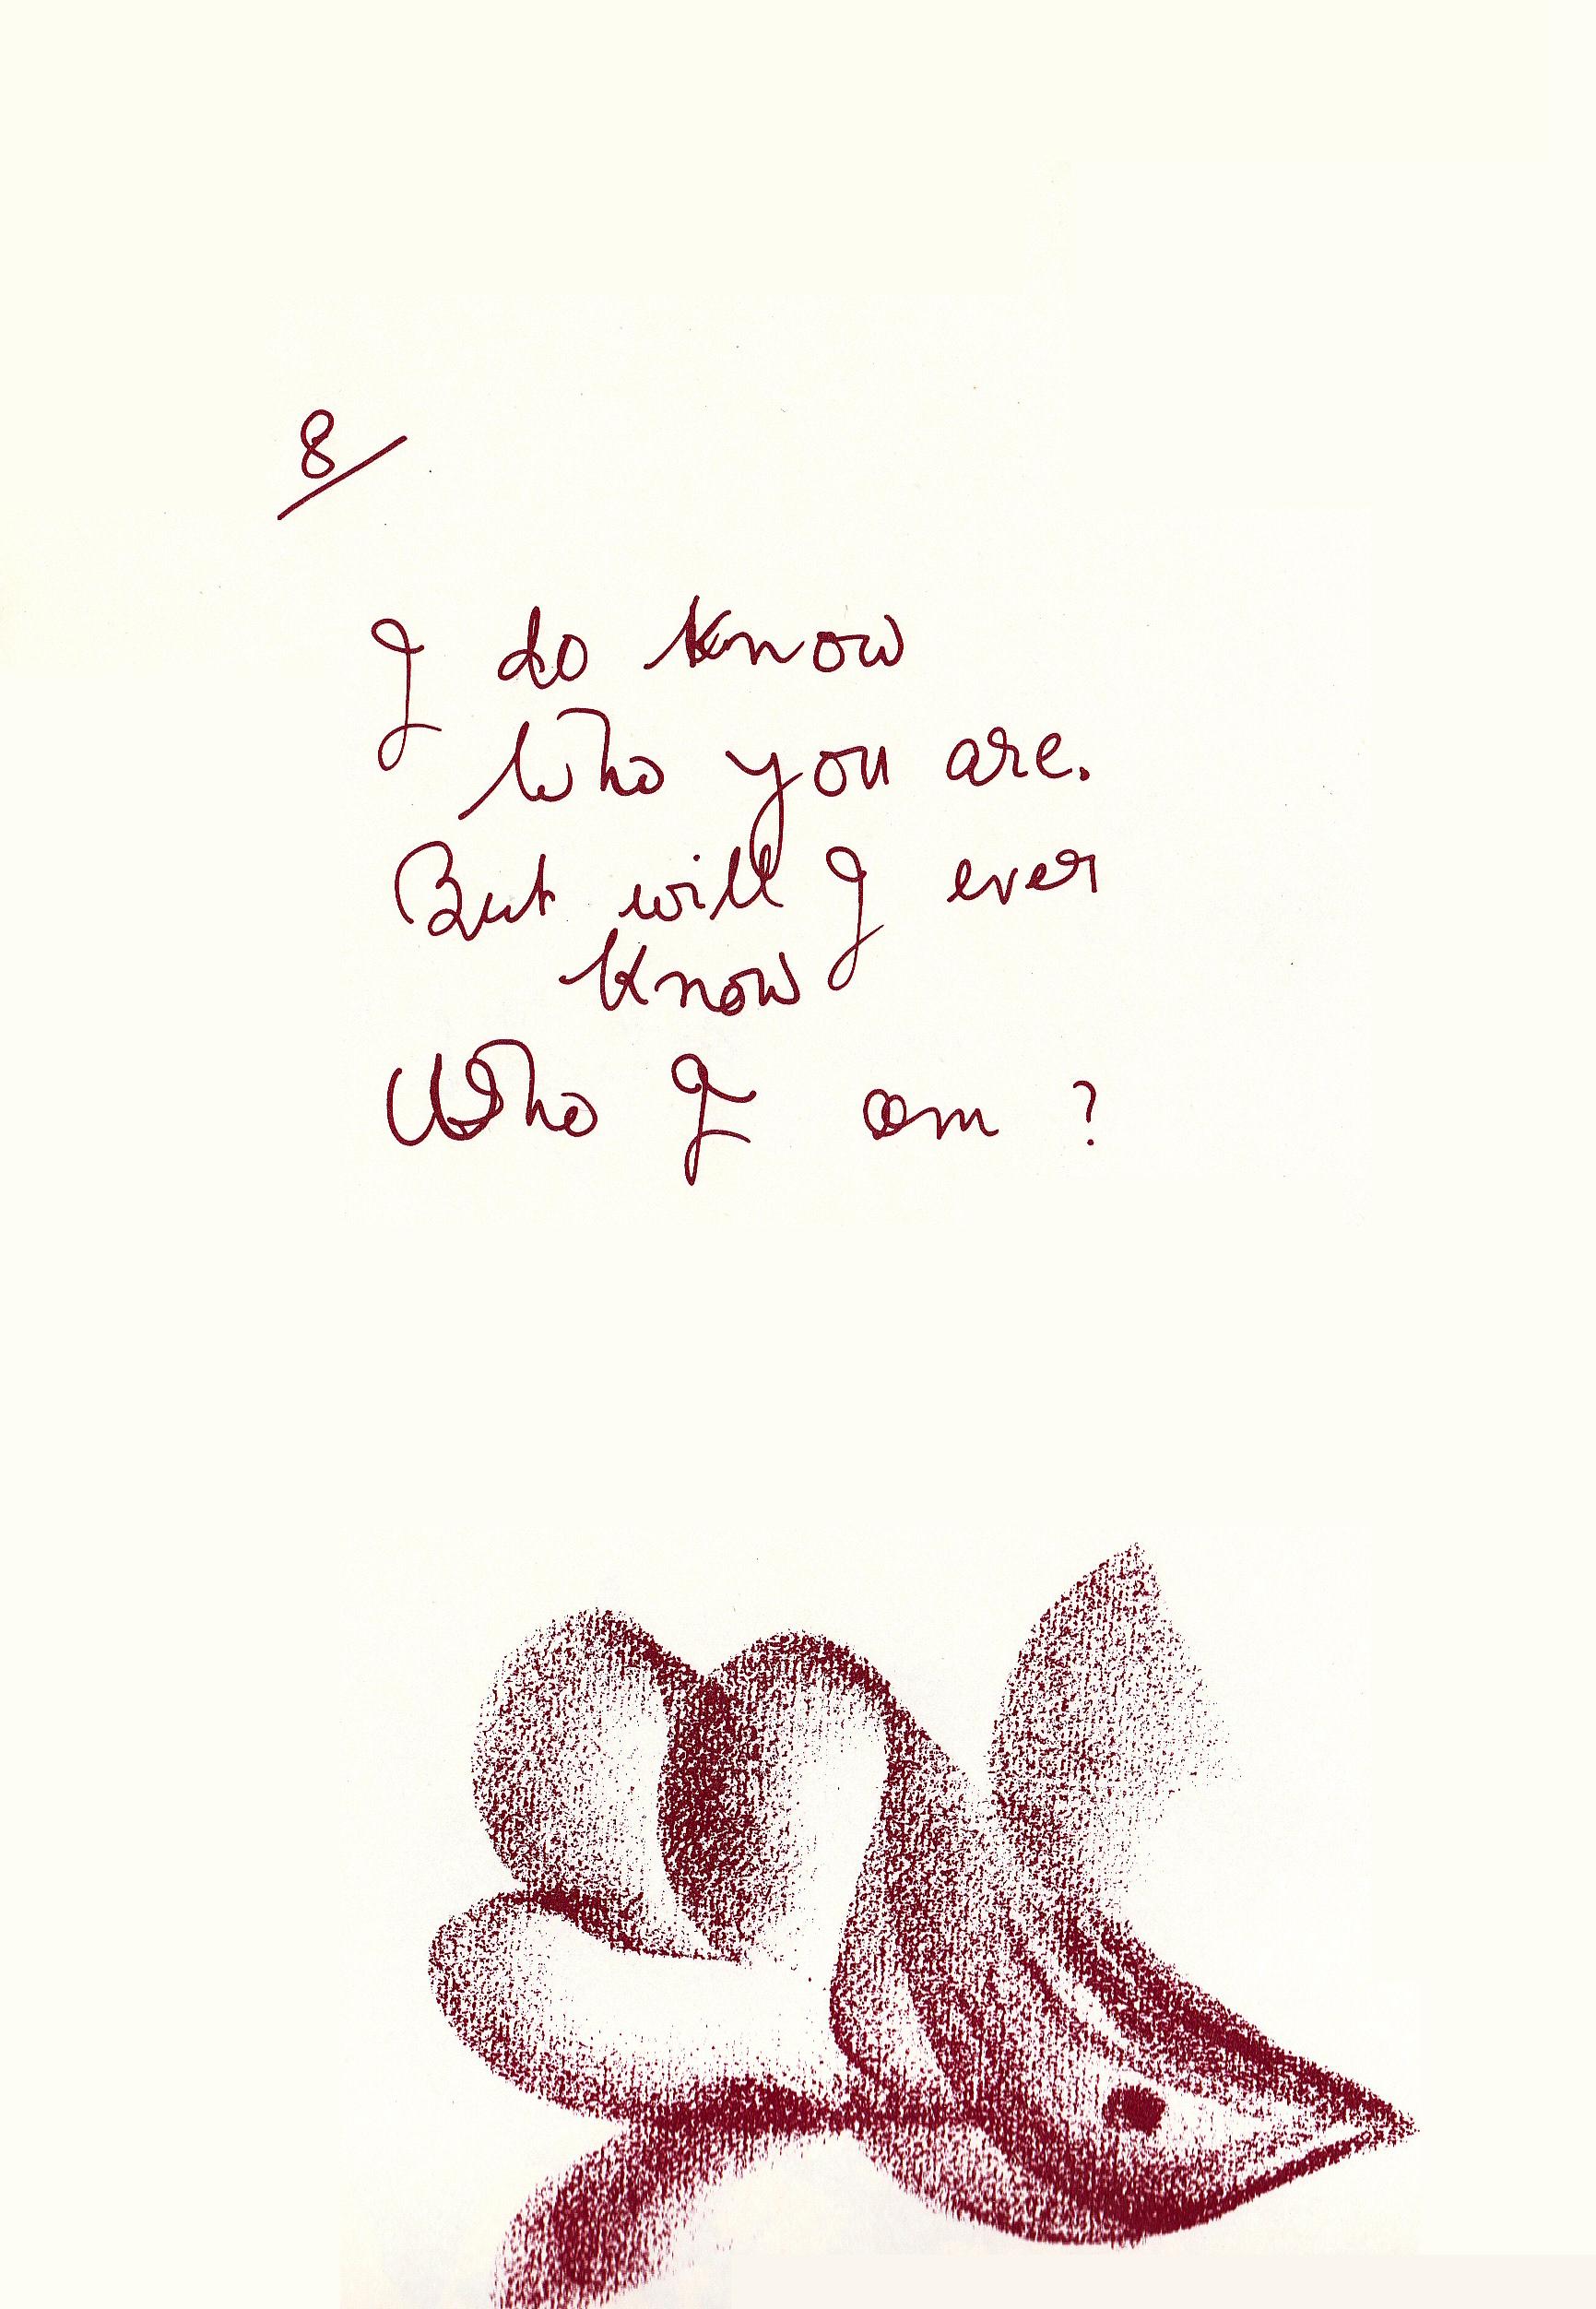 8
I do know
Who you are.
But will I ever
Know
Who I am ?